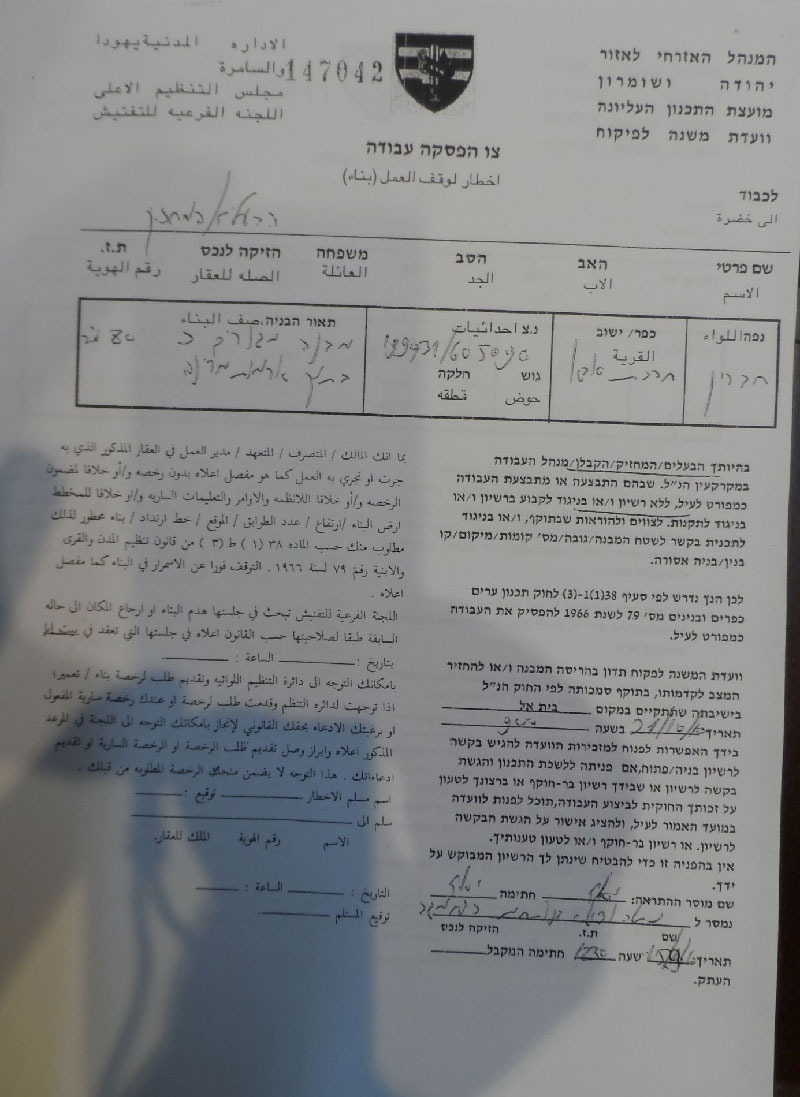 המנהל האזרחי לאזור
יהודה ושומרון
מועצת התכנון העליונה
וועדת משנה לפיקוח
الاداره المدنية يهودا
والسامرة
147042
مجلس التنظيم الاعلى
اللجنه الفرعيه للتفتيش
צו הפסקה עבודה
اخطار لوقف العمل (بناء)
לכבוד
الى خضرة
שם פרטי האב הסב משפחה הזיקה לנכס ת.ז.
الاسم الاب الجد العائلة الصله للعقار رقم الهوية
נפה/اللواء
חברון
כפר/ ישוב
القرية
חרבת
נ.צ احداثيات
גוש חלקה
حوض قطعه
תאור הבניה،صف البناء
מבנה 80
בהיותך הבעלים/המחזיק/הקבלן/מנהל העבודה
במקרקעין הנ״ל. שבהם התבצעה או מתבצעת העבודה
כמפורט לעיל, ללא רשיון ו/או בניגוד לקבוע ברשיון ו/או
בניגוד לתקנות. לצווים ולהוראות שבתוקף, ו/או בניגוד
לתכנית בקשר לשטח המבנה/גובה/מס׳ קומות/מיקום/קו
בנין/בניה אסורה.
לכן הנך נדרש לפי סעיף 38(1)ט-(3) לחוק תכנון ערים
כפרים ובנינים מס׳ 79 לשנת 1966 להפסיק את העבודה
כמפורט לעיל.
וועדת המשנה לפקוח תדון בהריסה המבנה ו/או להחזיר
המצב לקדמותו, בתוקף סמכותה לפי החוק הנ״ל
בישיבתה שתתקיים במקום בית אל
תאריך בשעה
בידך האפשרות לפנות למזכירות הוועדה להגיש בקשה
לרשיון בניה/פתוח,אם פניתה ללשכת התכנון והגשת
בקשה לרשיון או שבידך רשיון בר-תוקף או ברצונך לטעון
על זכותך החוקית לביצוע העבודה,תוכל לפנות לוועדה
במועד האמור לעיל, ולהציג אישור על הגשת הבקשה
לרשיון. או רשיון בר-תוקף ו/או לטעון טענותיך.
אין בהפניה זו כדי להבטיח שינתן לך הרשיון המבוקש על
ידך.
שם מוסר ההתראה: חתימה
נמסר ל
שם ת.ז. הזיקה לנכס
תאריך שעה 1230 חתימה המקבל
העתק.
بما انك المالك / المتصرف / المتعهد / مدير العمل في العقار المذكور الذي به
جرت او تجري به العمل كما هو مفصل اعلاه بدون رخصه و/أو خلافا لمضمون
الرخصه و/أو خلافا للانظمه والاوامر والتعليمات الساريه و/او خلافا للمخطط
ارض البناء /ارتفاع / عدد الطوابق / الموقع / خط ارتداد / بناء محظور لذلك
مطلوب منك حسب الماده ٣٨ (١) ط (٣) من قانون تنظيم المدن والقرى
والابنية رقم ٧٩ لسنة ١٩٦٦ . التوقف فورا عن الاستمرار في البناء كما مفصل
اعلاه .
اللجنة الفرعية للتفتيش تبحث في جلستها هدم البناء او ارجاع المكان الى حاله
السابقة طبقا لصلاحيتها حسب القانون اعلاه في جلستها التي تعقد في
بتاريخ : الساعة :
بامكانك التوجه الى دائرة التنظيم اللوائيه وتقديم طلب لرخصة بناء / تعمير؛
اذا توجهت لدائره التنظم وقدمت طلب لرخصة او عندك رخصة سارية المفعول
او برغبتك الادعاء بحقك القانوني لإنجاز بامكانك التوجه الى اللجنة في الموعد
المذكور اعلاه وابراز وصل تقديم طلب الرخصة او الرخصة السارية او تقديم
ادعاءاتك . هذا التوجه لا يضمن منحك الرخصة المطلوبه من قبلك .
اسم مسلم الاخطار توقيع :
سلم الى
الاسم رقم الهوية المالك للعقار
التاريخ : الساعة :
توقيع المستلم